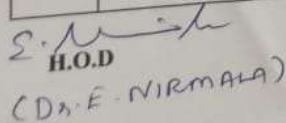 H.O.D
(Dr. E. NIRMALA)